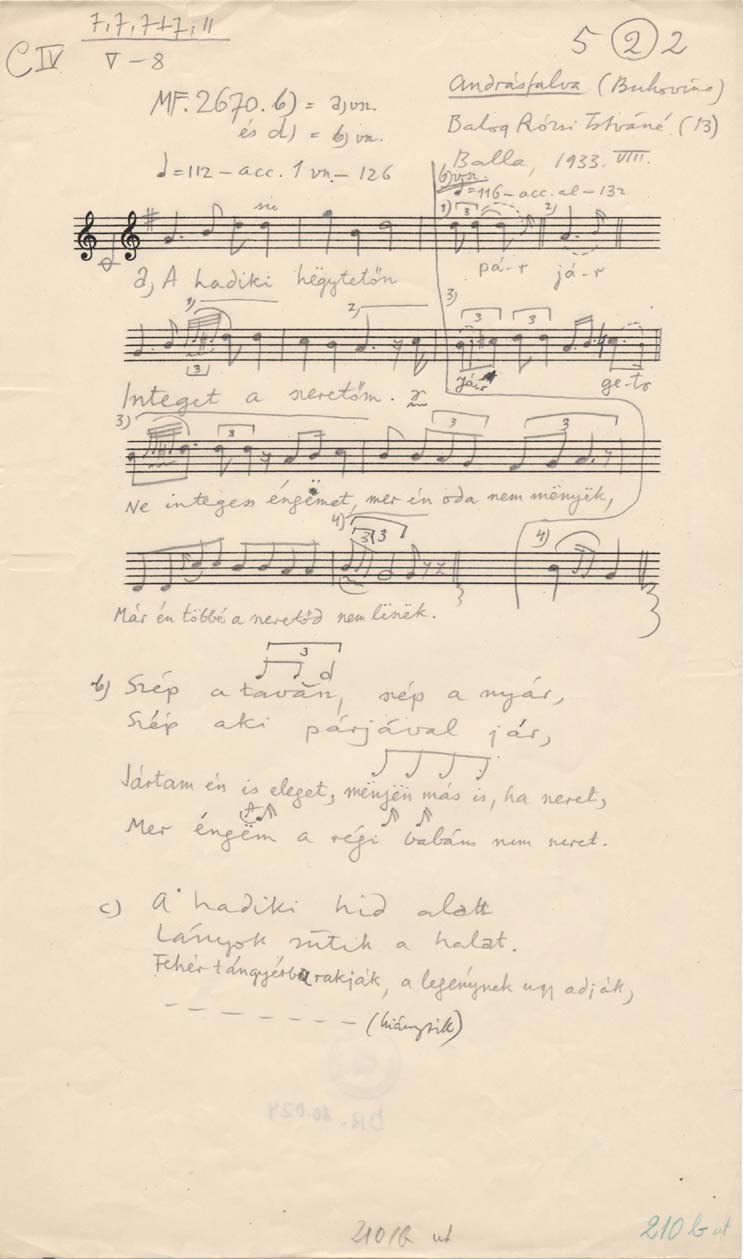 7, 7, 7+7, 11
C IV
V – 8
5 2 2
MF. 2670. b) = a) vn.
és d) = b) vn.
= 112 – acc. 1 vn. – 126
Andrásfalva (Bukovina)
Balog Rózsi Istváné (13)
Balla, 1933. VIII.
b) vsz.
= 116 – acc. al – 132
1) 3 2)
pá-r já-r
a) A hadiki hëgytetőn
1) 2) 3)
3 3 3
Integet a szeretőm.
já-r ge-tö
3) 3 3 3
Ne integess éngëmet, mer én oda nem mënyëk,
4) 3 3 4)
Már én többé a szeretőd nem lëszëk.
3
b) Szép a taván, szép a nyár,
Szép aki párjával jár,
Jártam én is eleget, mënjën más is, ha szeret,
Mer éngëm a régi babám nem szeret.
c) A hadiki hid alatt
Lányok sütik a halat.
Fehér tángyérba rakják, a legénynek ugy adják,
– – – – – – – – (hiányzik)
210/b ut
210 b ut